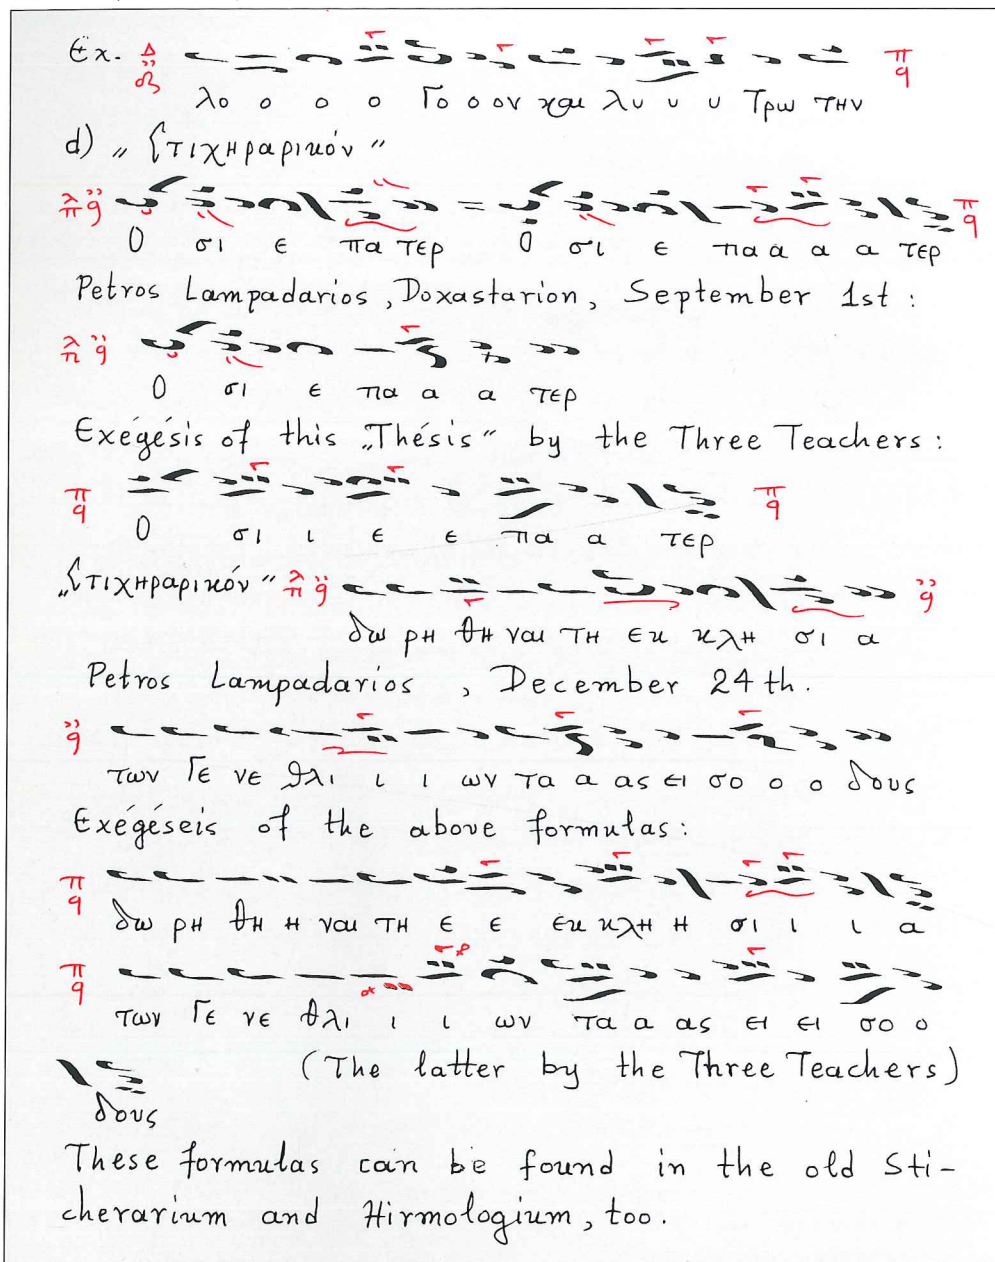 Ex.
λο ο ο ο Γο ο ον και λυ υ υ Τρω την
d) „Στιχηραρικόν"
Ο σι ε πα τερ = Ο σι ε πα α α α τερ
Petros Lampadarios, Doxastarion, September 1st:
Ο σι ε πα α α τερ
Exégésis of this „Thésis" by the Three Teachers:
Ο σι ι ε ε πα α τερ
„Στιχηραρικόν"
δω ρη θη ναι τη εκ κλη σι α
Petros Lampadarios, December 24th.
των Γε νε θλι ι ι ων τα α ας ει σο ο ο δους
Exégéseis of the above formulas:
δω ρη θη η ναι τη ε ε εκ κλη η σι ι ι α
των Γε νε θλι ι ι ι ων τα α ας ει ει σο ο
(The latter by the Three Teachers)
δους
These formulas can be found in the old Sti-
cherarium and Hirmologium, too.